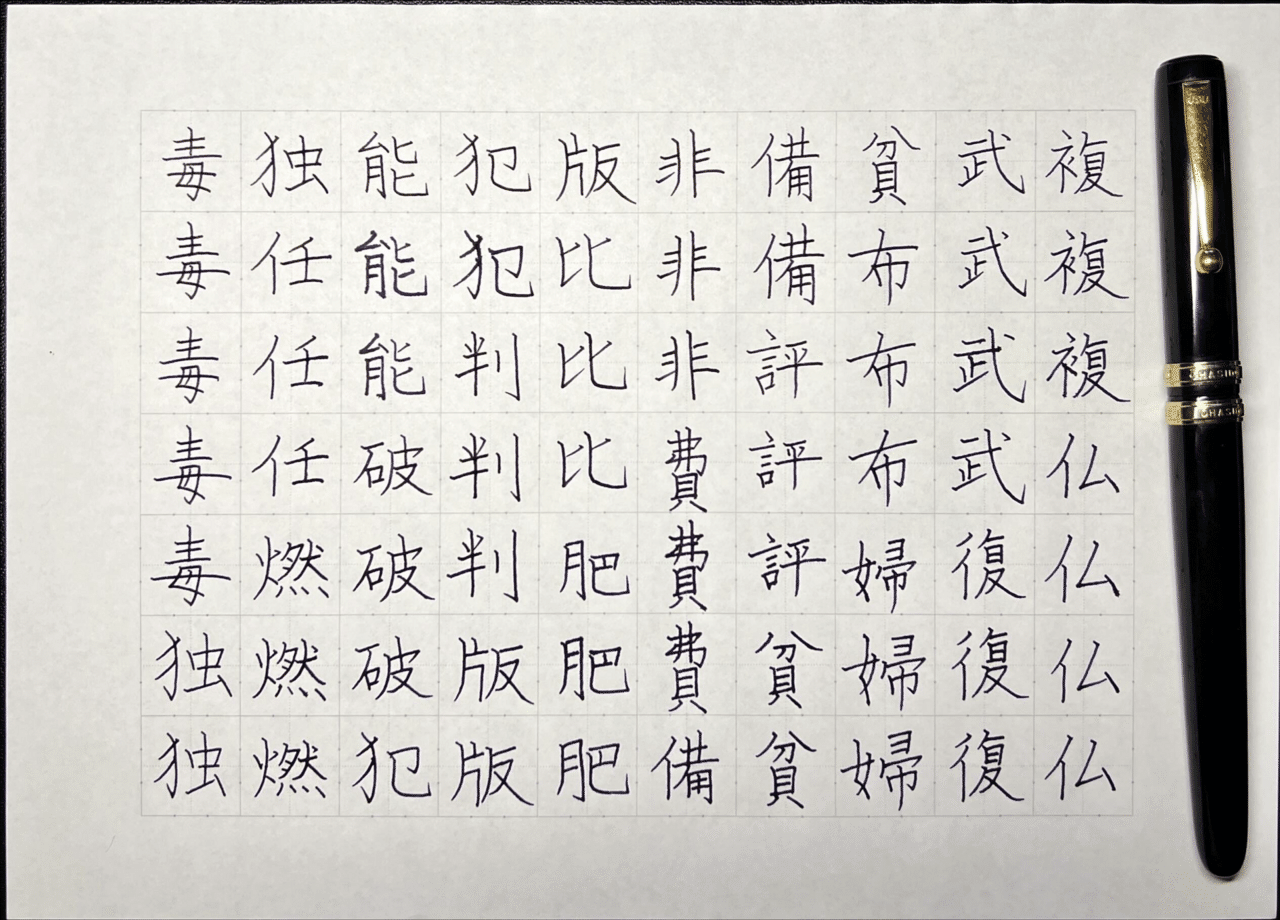 毒毒毒毒毒独独
独任任任燃燃燃
能能能破破破犯
犯犯判判判版版
版比比比肥肥肥
非非非費費費備
備備評評評貧貧
貧布布布婦婦婦
武武武武復復復
複複複仏仏仏仏